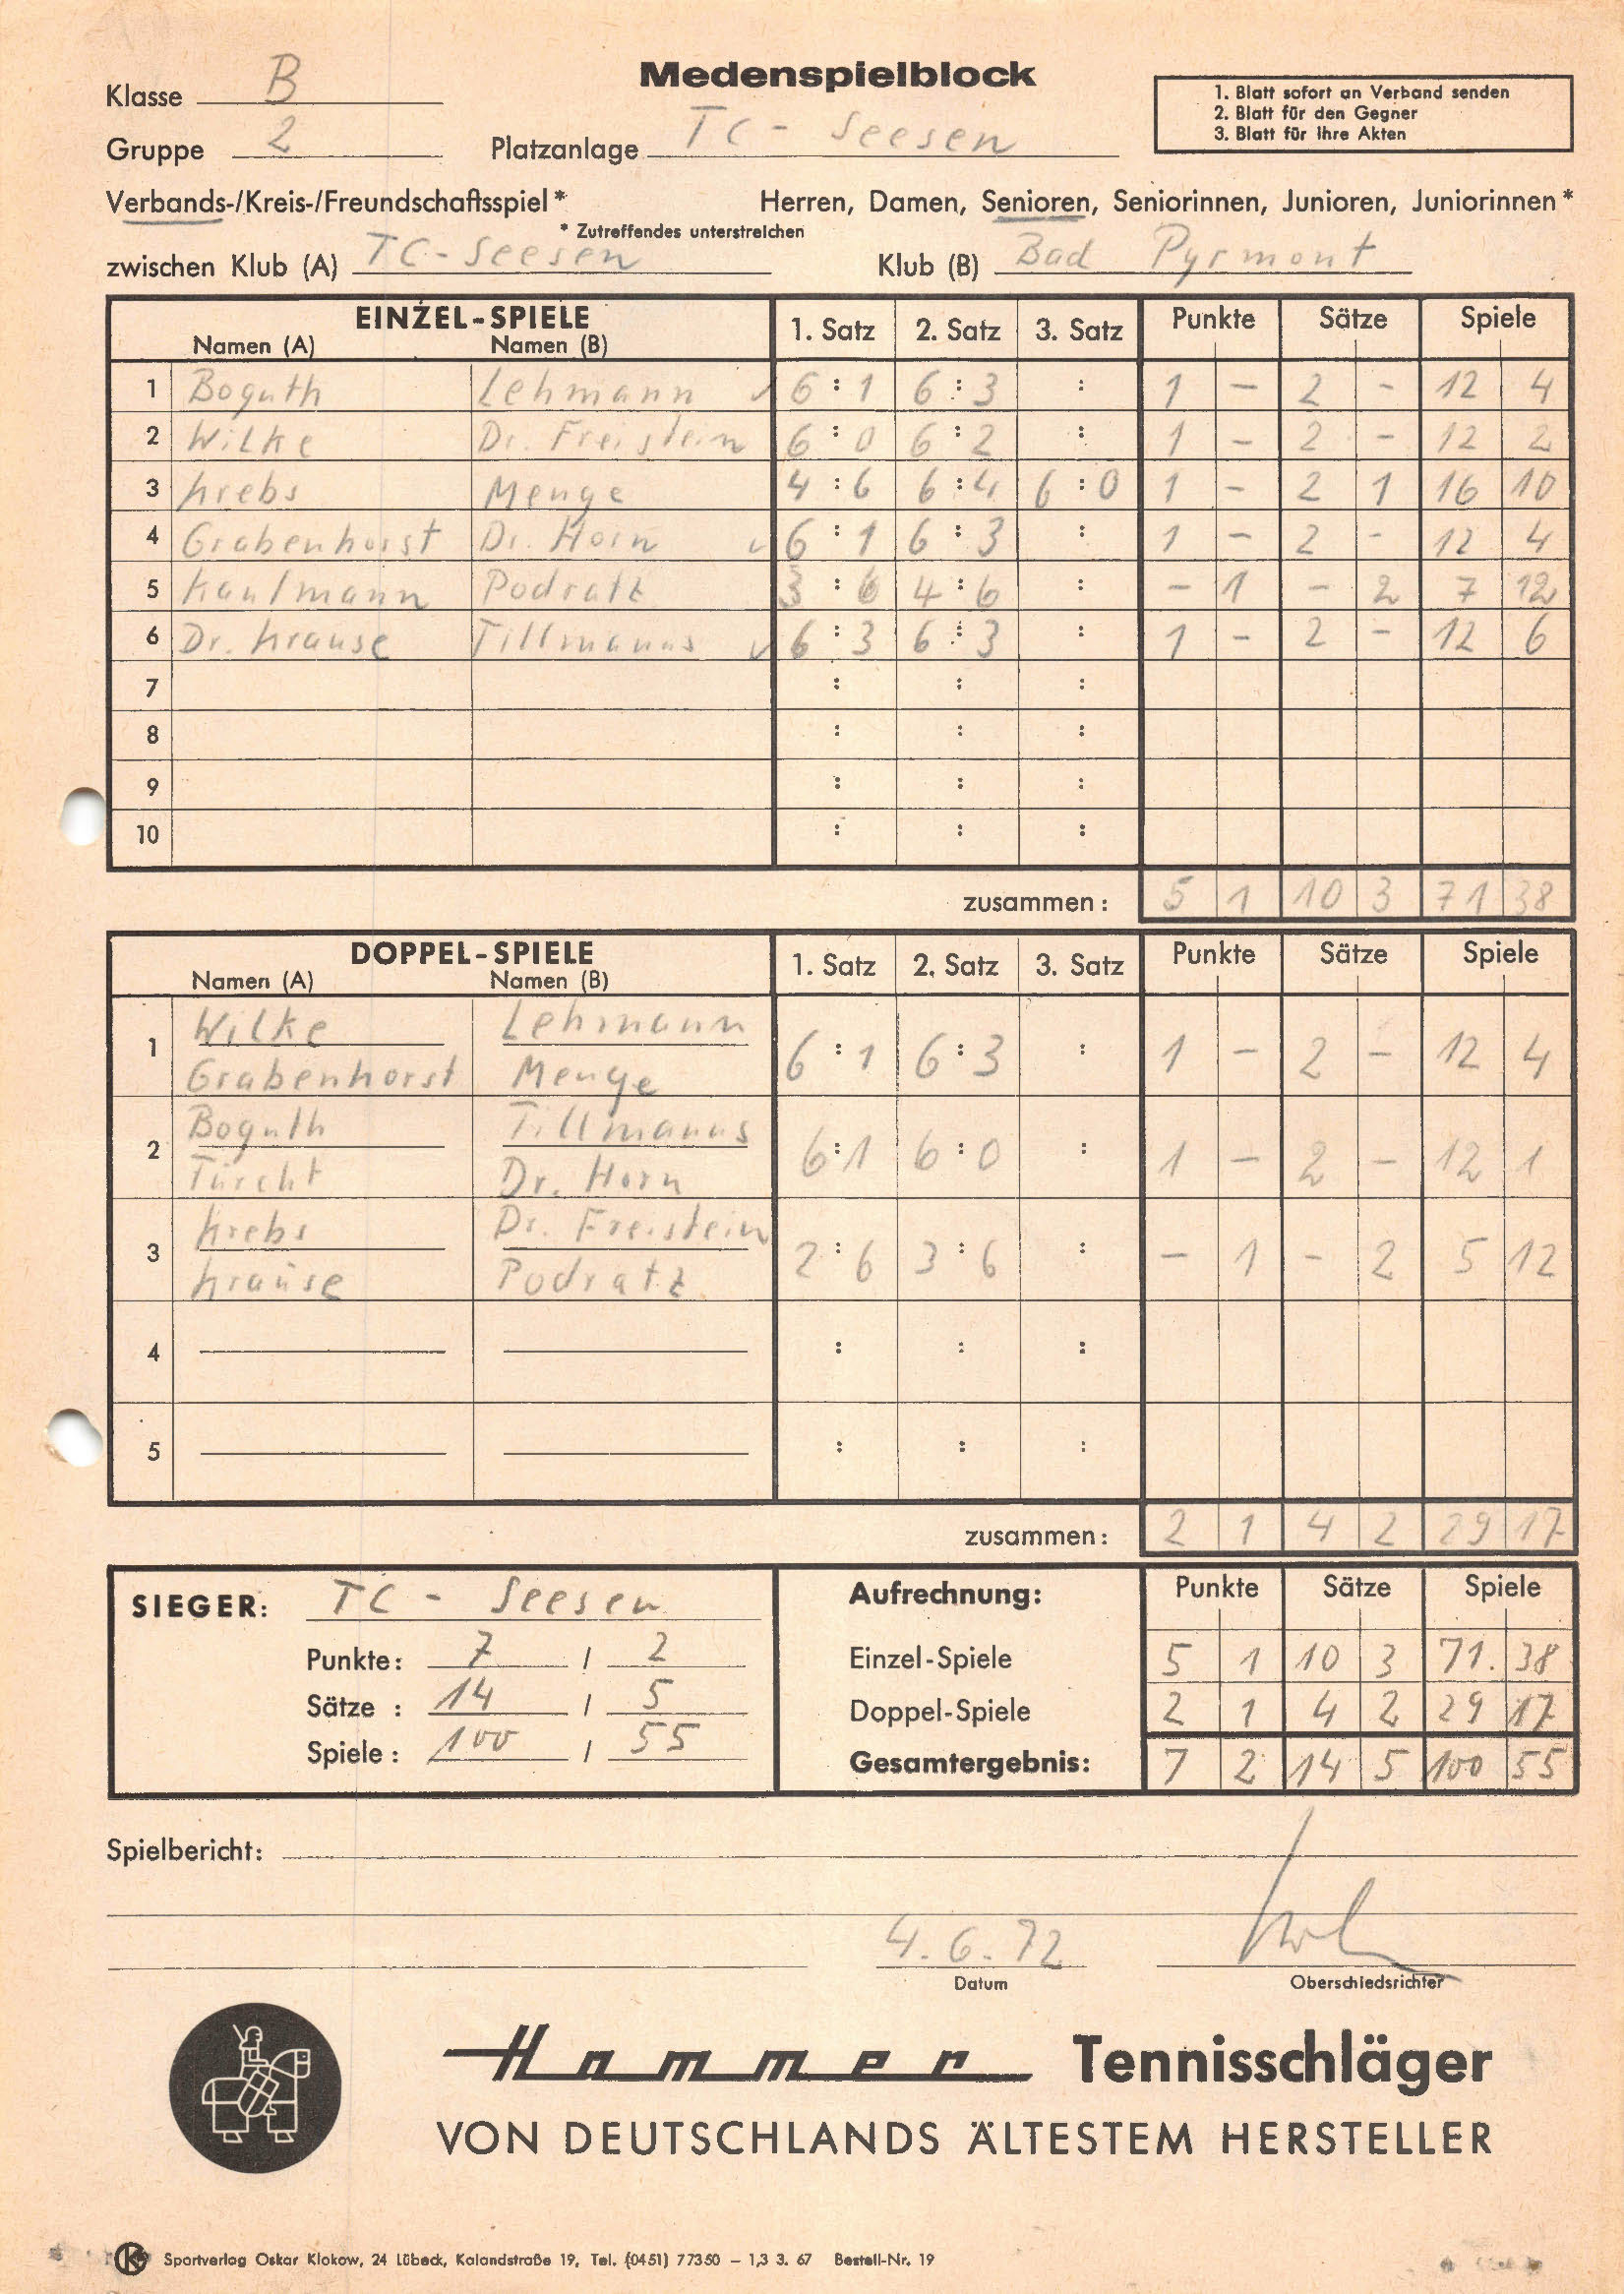 Medenspielblock
Klasse B
1. Blatt sofort an Verband senden
2. Blatt für den Gegner
3. Blatt für Ihre Akten
Gruppe 2 Platzanlage TC - Seesen
Verbands-/Kreis-/Freundschaftsspiel * Herren, Damen, Senioren, Seniorinnen, Junioren, Juniorinnen *
* Zutreffendes unterstreichen
zwischen Klub (A) TC - Seesen Klub (B) Bad Pyrmont
EINZEL-SPIELE 1. Satz 2. Satz 3. Satz Punkte Sätze Spiele
Namen (A) Namen (B)
1 Boguth Lehmann 6 : 1 6 : 3 : 1 - 2 - 12 4
2 Wilke Dr. Freistein 6 : 0 6 : 2 : 1 - 2 - 12 2
3 Krebs Menge 4 : 6 6 : 4 6 : 0 1 - 2 1 16 10
4 Grabenhorst Dr. Horn 6 : 1 6 : 3 : 1 - 2 - 12 4
5 Kaufmann Podratz 3 : 6 4 : 6 : - 1 - 2 7 12
6 Dr. Krause Tillmanns 6 : 3 6 : 3 : 1 - 2 - 12 6
7 : : :
8 : : :
9 : : :
10 : : :
zusammen: 5 1 10 3 71 38
DOPPEL-SPIELE 1. Satz 2. Satz 3. Satz Punkte Sätze Spiele
Namen (A) Namen (B)
Wilke Lehmann
1 6 : 1 6 : 3 : 1 - 2 - 12 4
Grabenhorst Menge
Boguth Tillmanns
2 6 : 1 6 : 0 : 1 - 2 - 12 1
Türcht Dr. Horn
Krebs Dr. Freistein
3 2 : 6 3 : 6 : - 1 - 2 5 12
Krause Podratz
4 : : :
5 : : :
zusammen: 2 1 4 2 29 17
SIEGER: TC - Seesen
Punkte: 7 / 2
Sätze : 14 / 5
Spiele : 100 / 55
Aufrechnung: Punkte Sätze Spiele
Einzel-Spiele 5 1 10 3 71. 38
Doppel-Spiele 2 1 4 2 29 17
Gesamtergebnis: 7 2 14 5 100 55
Spielbericht:
4.6.72
Datum Oberschiedsrichter
Hammer Tennisschläger
VON DEUTSCHLANDS ÄLTESTEM HERSTELLER
OK Sportverlag Oskar Klokow, 24 Lübeck, Kalandstraße 19, Tel. (0451) 77350 – 1,3 3. 67 Bestell-Nr. 19